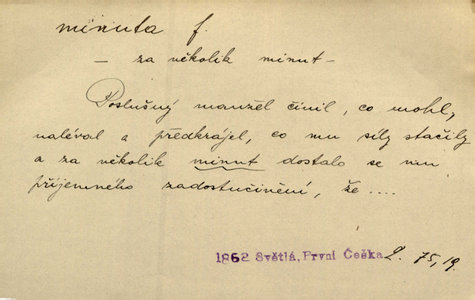 minuta f.
– za několik minut –
Poslušný manžel činil, co mohl,
naléval a předkrájel, co mu síly stačily
a za několik minut dostalo se mu
příjemného zadostučinění, že ....
1862 Světlá, První Češka 2. 75, 19.